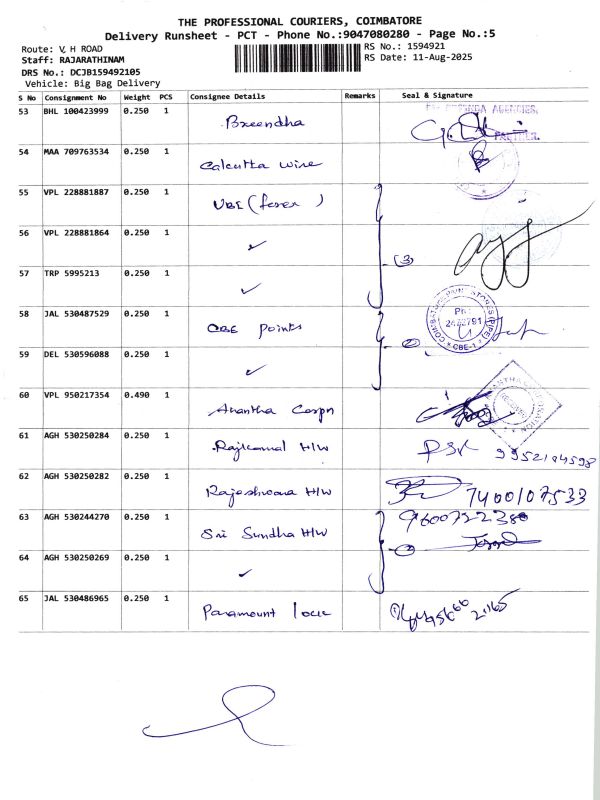 THE PROFESSIONAL COURIERS, COIMBATORE
Delivery Runsheet - PCT - Phone No.:9047080280 - Page No.:5
Route: V, H ROAD
RS No.: 1594921
Staff: RAJARATHINAM
RS Date: 11-Aug-2025
DRS No.: DCJB159492105
Vehicle: Big Bag Delivery
S No Consignment No Weight PCS Consignee Details Remarks Seal & Signature
53 BHL 100423999 0.250 1 Breendha
AGENCIES,
PARTNER.
54 MAA 709763534 0.250 1 Calcutta Wire
55 VPL 228881887 0.250 1 UBE (forex )
56 VPL 228881864 0.250 1 ✓
(3)
57 TRP 5995213 0.250 1 ✓
58 JAL 530487529 0.250 1 CBE Points
CBE-1
59 DEL 530596088 0.250 1 ✓
60 VPL 950217354 0.490 1 Anantha Corpn
61 AGH 530250284 0.250 1 Rajkamal H/W
62 AGH 530250282 0.250 1 Rajeshwara H/W 7400107533
63 AGH 530244270 0.250 1 Sri Sundha H/W
64 AGH 530250269 0.250 1 ✓
65 JAL 530486965 0.250 1 Paramount lock